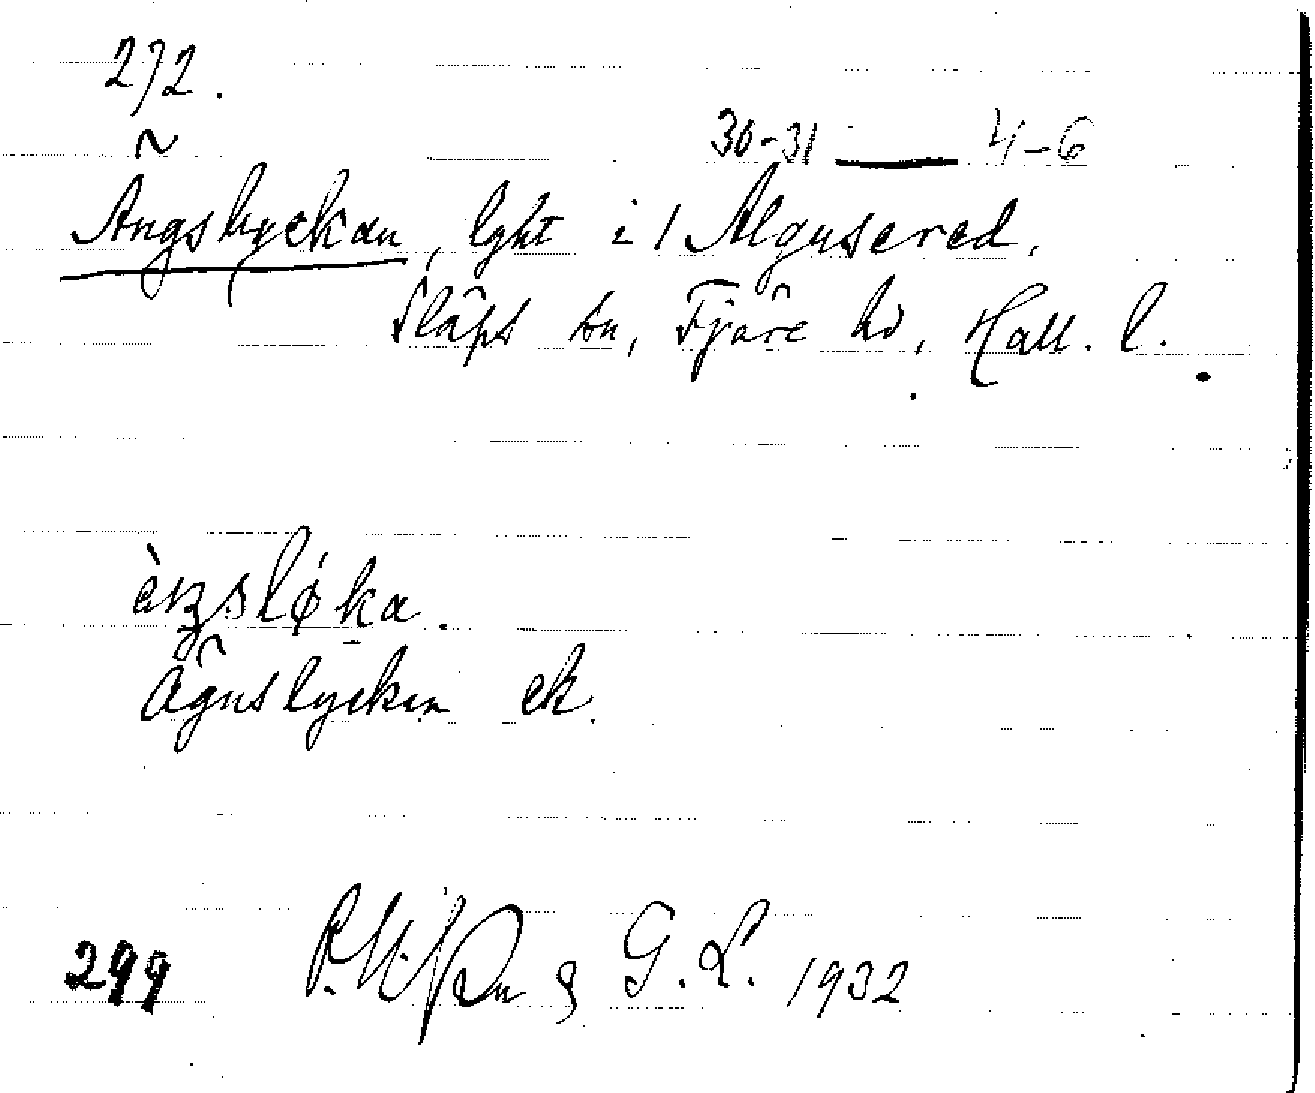 272.
30-31 — 4-6
Ängslyckan, lght i 1 Älgusered,
Släps sn, Fjäre hd, Hall. l.
èŋsløka.
Ägnslycken ek.
299 G. L. 1932